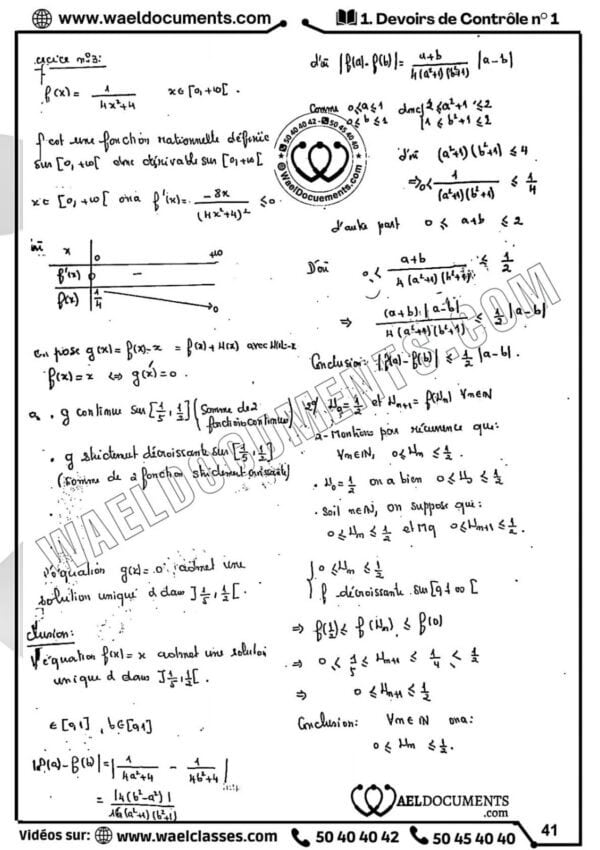 www.waeldocuments.com
1. Devoirs de Contrôle n° 1
exercice n°3:
f(x) = 1/(4x²+4)   x∈[0,+∞[.
f est une fonction rationnelle définie
sur [0,+∞[ donc dérivable sur [0,+∞[
x∈[0,+∞[ on a f'(x) = -8x/(4x²+4)² ≤ 0
x 0 +∞
f'(x) 0 −
f(x) 1/4 → 0
on pose g(x) = f(x)-x = f(x)+H(x) avec H(x)=-x
f(x) = x ⇔ g(x) = 0.
g continue sur [1/5, 1/2] (somme de 2 fonctions continues)
. g strictement décroissante sur [1/5, 1/2]
(somme de 2 fonction strictement
l'équation g(x) = 0 admet une
solution unique α dans ]1/5, 1/2[.
clusion:
l'équation f(x) = x admet une solution
unique α dans ]1/5, 1/2[.
∈[0,1], b∈[0,1]
|f(a)-f(b)| = |1/(4a²+4) - 1/(4b²+4)|
= |4(b²-a²)|/16(a²+1)(b²+1)
d'où |f(a)-f(b)| = (a+b)/(4(a²+1)(b²+1)) |a-b|
Comme 0≤a≤1 donc { 1≤a²+1≤2
0≤b≤1 { 1≤b²+1≤2
d'où (a²+1)(b²+1) ≤ 4
⇒ 0< 1/((a²+1)(b²+1)) ≤ 1/4
d'autre part 0 ≤ a+b ≤ 2
D'où 0 ≤ (a+b)/(4(a²+1)(b²+1)) ≤ 1/2
⇒ (a+b).|a-b|/(4(a²+1)(b²+1)) ≤ 1/2 |a-b|
Conclusion: |f(a)-f(b)| ≤ 1/2 |a-b|.
2°/ U₀ = 1/2 et Uₙ₊₁ = f(Uₙ) ∀n∈ℕ
a- Montrons par récurrence que:
∀n∈ℕ, 0≤Uₙ≤1/2
. U₀ = 1/2 on a bien 0 ≤ U₀ ≤ 1/2
. Soit n∈ℕ, on suppose que:
0≤Uₙ≤1/2 et Mq 0≤Uₙ₊₁≤1/2.
{ 0 ≤ Uₙ ≤ 1/2
{ f décroissante sur [0,+∞[
⇒ f(1/2) ≤ f(Uₙ) ≤ f(0)
⇒ 0 < 1/5 ≤ Uₙ₊₁ ≤ 1/4 < 1/2
⇒ 0 ≤ Uₙ₊₁ ≤ 1/2
Conclusion: ∀n∈ℕ on a:
0 ≤ Uₙ ≤ 1/2.
50 40 40 42 - 50 45 40 40
@WaelDocuements.com
WAELDOCUMENTS.COM
WAELDOCUMENTS
.com
41
Vidéos sur: www.waelclasses.com 50 40 40 42 50 45 40 40